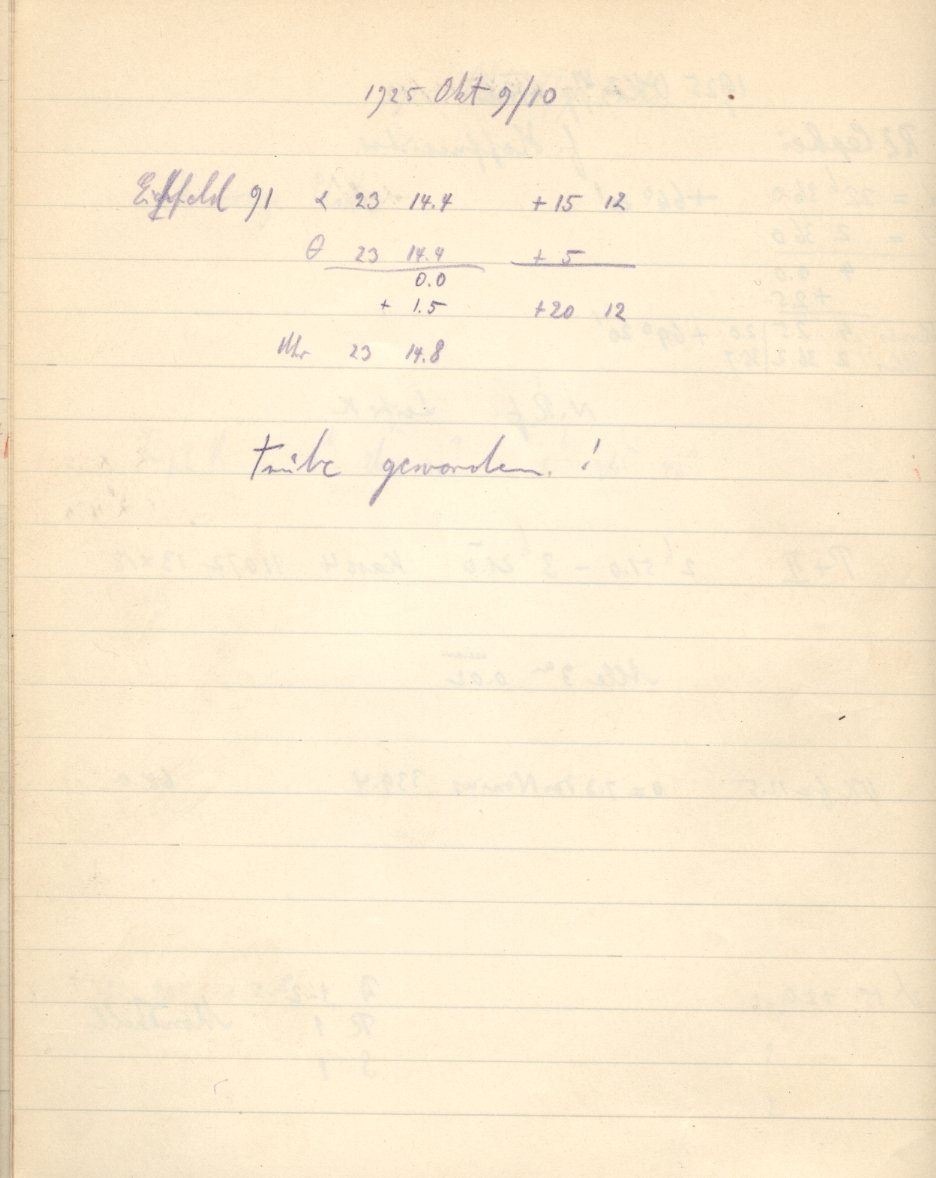 1925 Okt 9/10
Eichfeld 91 α 23 14.4 + 15 12
θ 23 14.4 + 5
0.0
+ 1.5 +20 12
Uhr 23 14.8
trübe geworden. !